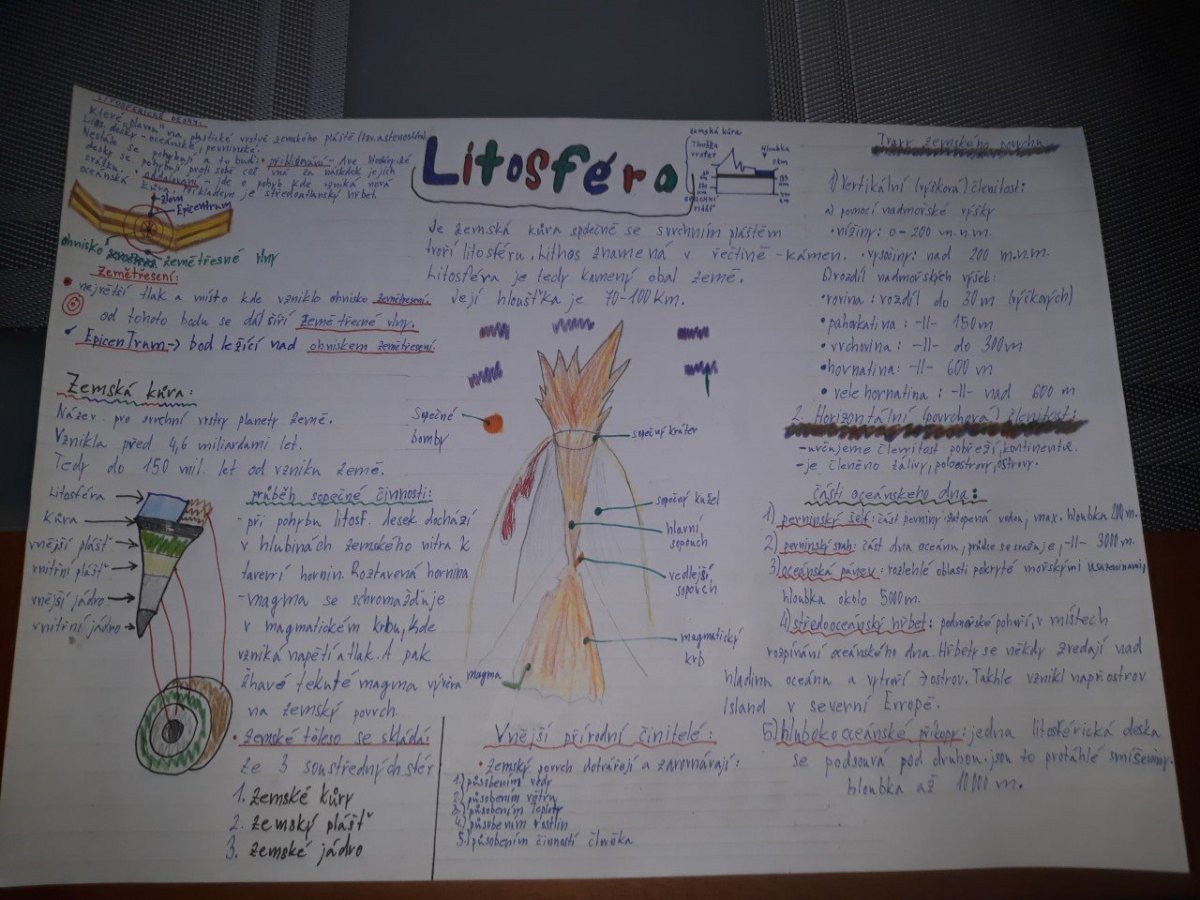 Litosférické desky:
které "plavou" na plastické vrstvě zemského pláště (tzv. astenosféra)
Lito. desky - oceánské, pevninské.
Neustále se pohybují a to buď: • přibližování - dvě litosférické
desky se pohybují proti sobě což má za následek jejich
srážku. • oddalování - jde o pohyb kde vzniká nová
oceánská kůra. Příkladem je středoatlanský hřbet
zlom
Epicentrum
ohnisko zemětřesné vlny
zemětřesení:
největší tlak a místo kde vzniklo ohnisko zemětřesení.
od tohoto bodu se dál šíří zemětřecné vlny.
Epicentrum → bod ležící nad ohniskem zemětřesení
Zemská kůra:
Název pro svrchní vrstvy planety země.
Vznikla před 4,6 miliardami let.
Tedy do 150 mil. let od vzniku země.
Litosféra
Kůra
vnější plášť
vnitřní plášť
vnější jádro
vnitřní jádro
průběh sopečné činnosti:
- při pohybu litosf. desek dochází
v hlubinách zemského nitra k
tavení hornin. Roztavená hornina
- magma se schromažďuje
v magmatickém krbu, kde
vzniká napětí a tlak. A pak
žhavé tekuté magma vyvěra
na zemský povrch.
• zemské těleso se skládá:
ze 3 soustředných sfér
1. zemské kůry
2. zemský plášť
3. zemské jádro
Litosféra
zemská kůra
Tloušťka
vrstev
hloubka
okm
svrchní
plášť
Je zemská kůra společně se svrchním pláštěm
tvoří litosféru. Lithos znamená v řečtině - kámen.
Litosféra je tedy kamený obal země.
Její hloušťka je 70-100 km.
Sopečné
bomby
sopečný kráter
sopečný kužel
hlavní
sopouch
vedlejší
sopouch
magmatický
krb
magma
Vnější přírodní činitelé:
• zemský povrch dotvářejí a zarovnávají:
1.) působením vody
2.) působením větru
3.) působením teploty
4.) působením rostlin
5.) působením činností člověka
Tvary zemského povrchu
1) Vertikální (výšková) členitost:
a) pomocí nadmořské výšky
• nížiny: 0-200 m.n.m.
• vysočiny: nad 200 m.n.m.
b) rozdíl nadmořských výšek:
• rovina: rozdíl do 30m (výškových)
• pahorkatina: -11- 150 m
• vrchovina: -11- do 300 m
• hornatina: -11- 600 m
• vele hornatina: -11- nad 600 m
2. Horizontální (povrchová) členitost:
- určujeme členitost pobřeží, kontinentu.
- je členěno zálivy, poloostrovy, ostrovy.
části oceánskeho dna:
1) pevninský šelf: část pevniny zatopená vodou, max. hloubka 200 m.
2) pevninský svah: část dna oceánu, prudce se svažuje, -11- 3000 m.
3) oceánská pánev: rozlehlé oblasti pokryté mořskými usazeninami,
hloubka okolo 5000m.
4) středooceánský hřbet: podmořské pohoří, v místech
rozpínání oceánského dna. Hřbety se někdy zvedají nad
hladinu oceánu a vytvoří ostrov. Takhle vznikl např. ostrov
Island v severní Evropě.
5) hlubokooceánské příkopy: jedna litosférická deska
se podsouvá pod druhou. jsou to protáhlé sníženiny.
hloubka až 10 000 m.